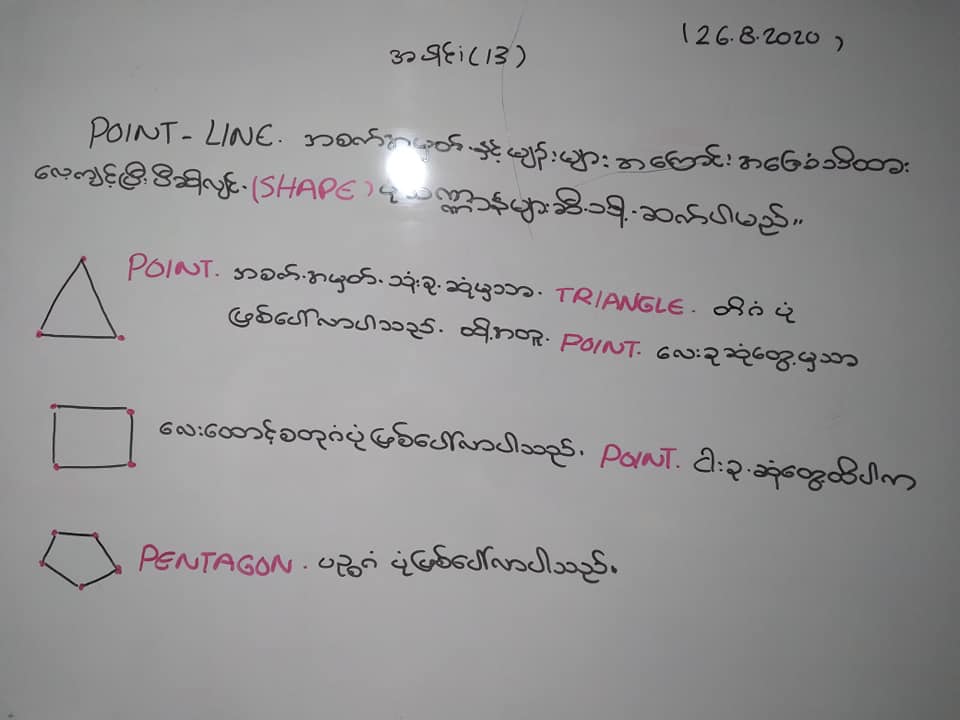 (26.8.2020)
အပိုင်း(13)
POINT-LINE. အစက်အမှတ်.နှင့်မျဉ်းများ အကြောင်း အခြေခံသိထား
လေ့ကျင့်ပြီးပြီဆိုလျှင်.(SHAPE) ပုံသဏ္ဌာန်များဆီ.သို့.ဆက်ပါမည်။
POINT. အစက်.အမှတ်.သုံးခု.ဆုံမှသာ. TRIANGLE. တြိဂံ ပုံ
ဖြစ်ပေါ်လာပါသည်. ထို့အတူ. POINT. လေးခုဆုံတွေ့မှသာ
လေးထောင့်စတုဂံပုံ ဖြစ်ပေါ်လာပါသည်. POINT. ငါးခု.ဆုံတွေ့ထိပါက
PENTAGON. ပဉ္စဂံ ပုံဖြစ်ပေါ်လာပါသည်.